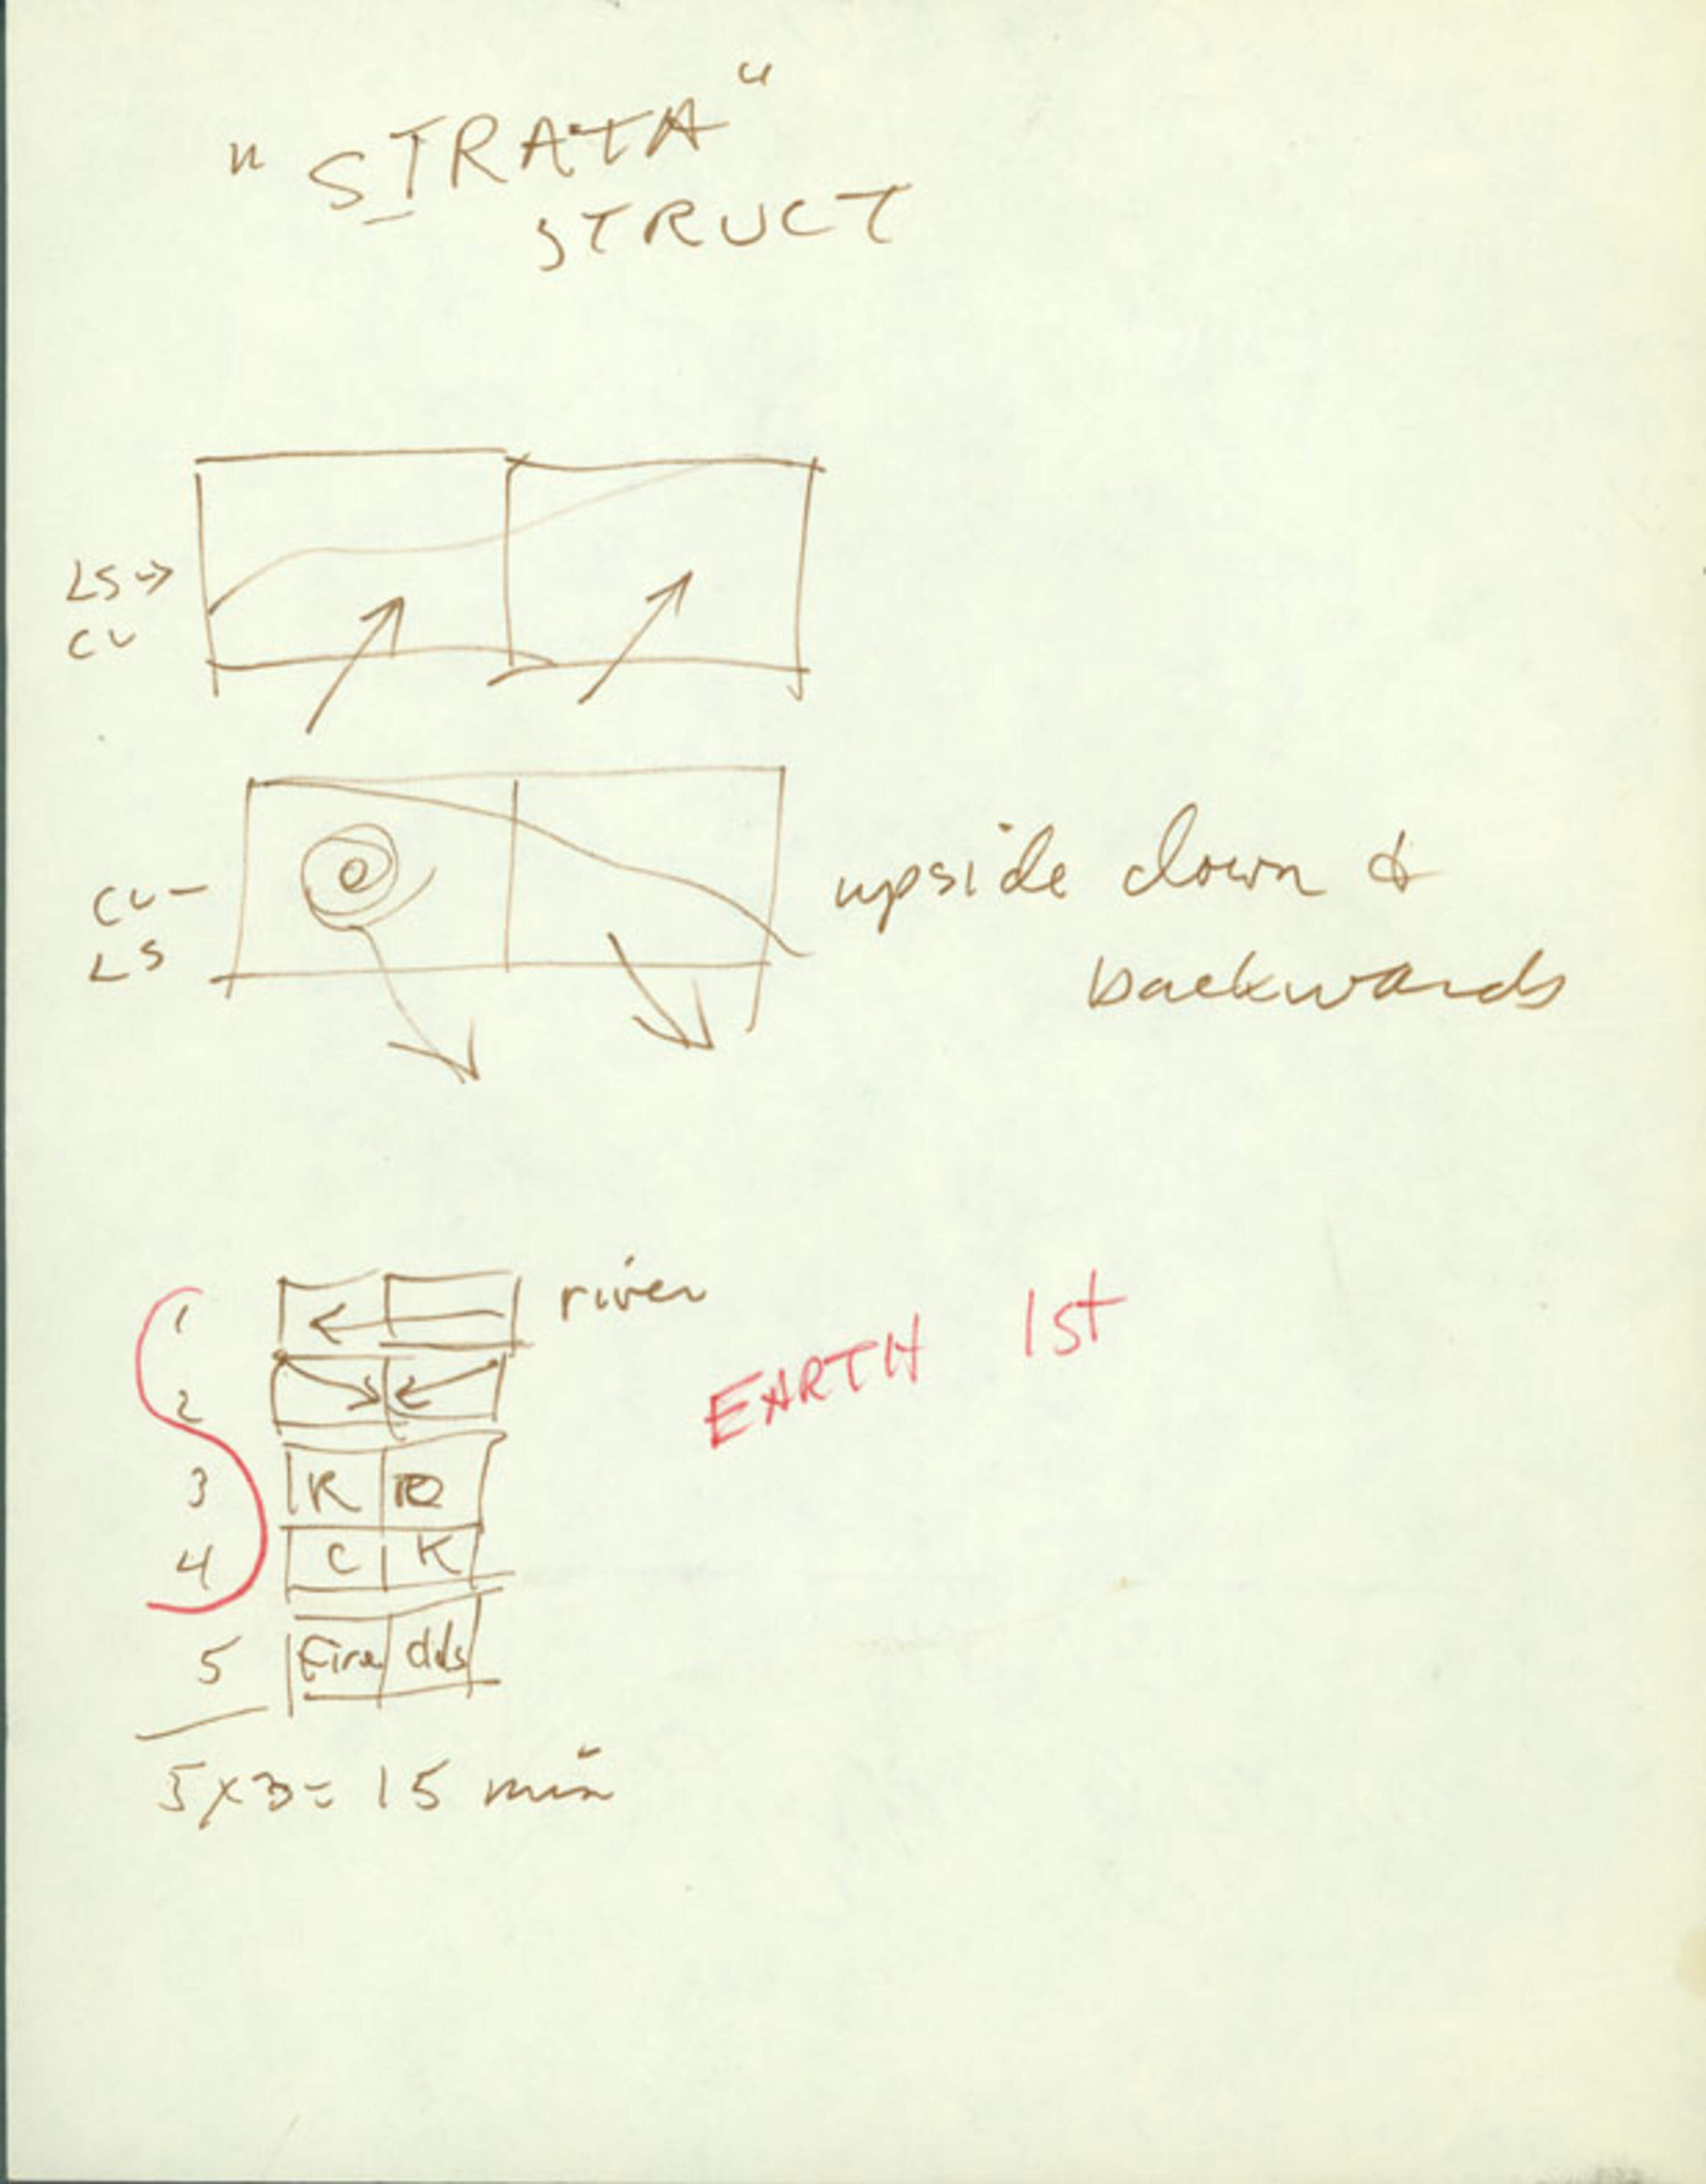 "STRATA"
STRUCT
LS →
CU
CU -
LS
upside down &
backwards
1
river
EARTH 1st
2
3 R
4 C K
5 Fire
5x3= 15 min